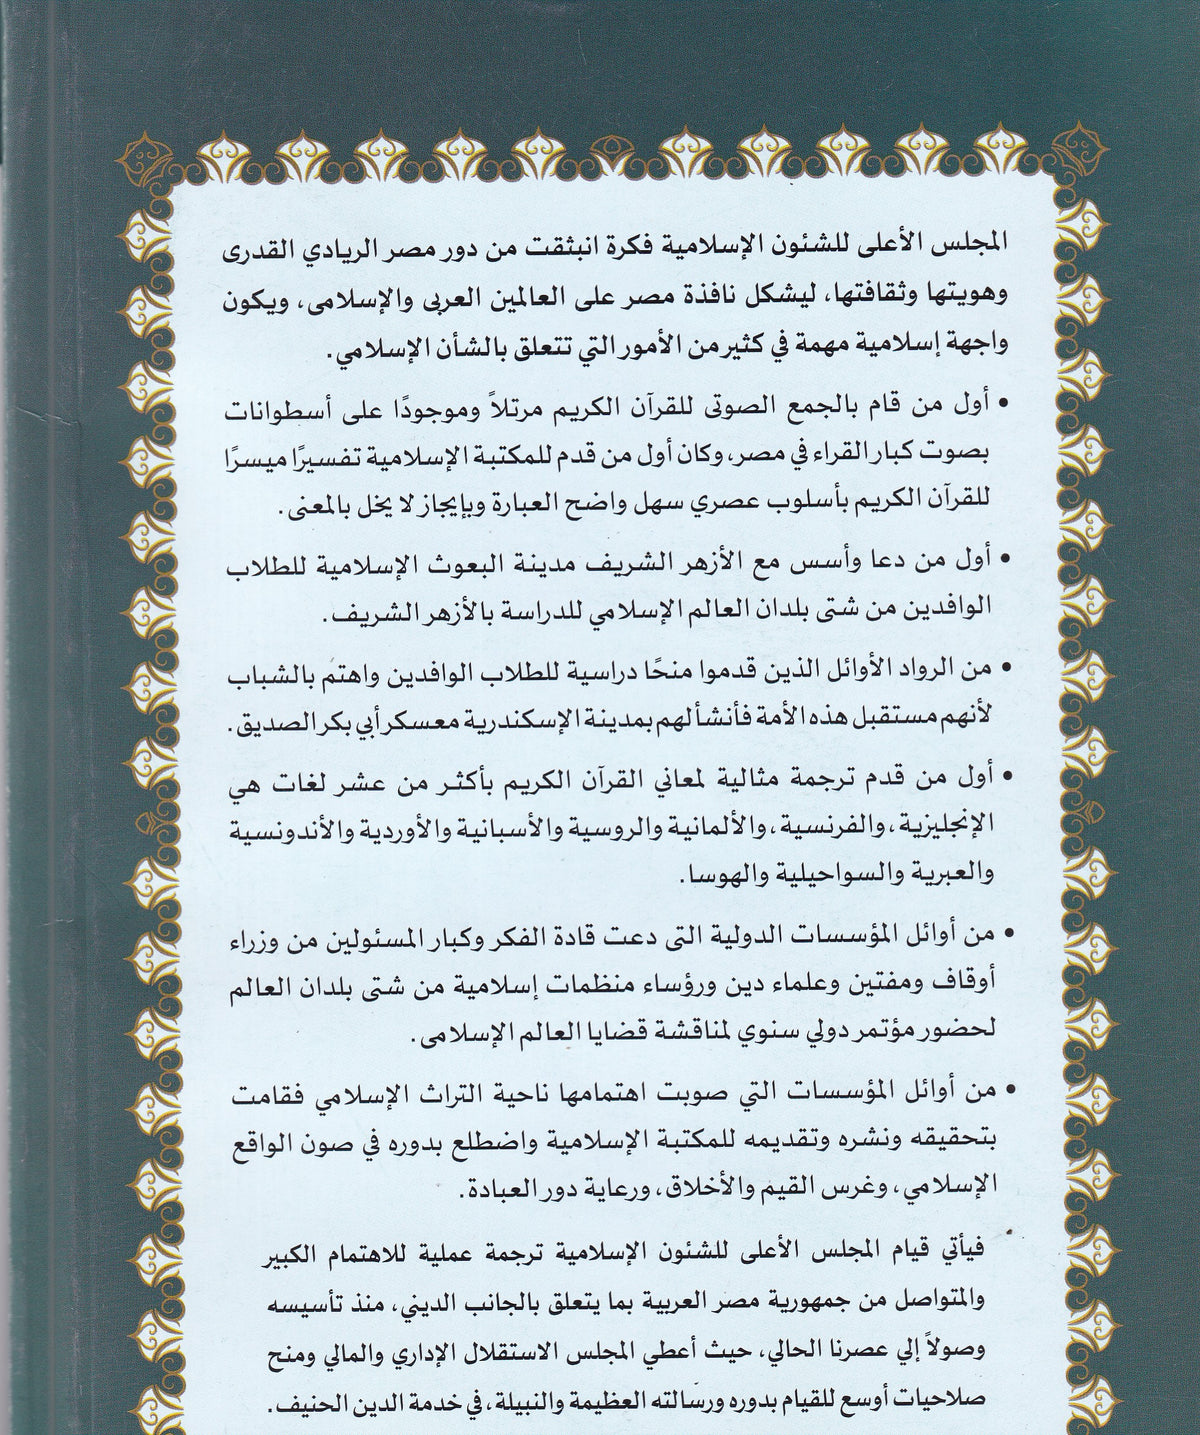 المجلس الأعلى للشئون الإسلامية فكرة انبثقت من دور مصر الريادي القدرى
وهويتها وثقافتها، ليشكل نافذة مصر على العالمين العربى والإسلامى، ويكون
واجهة إسلامية مهمة في كثير من الأمور التي تتعلق بالشأن الإسلامي.
• أول من قام بالجمع الصوتى للقرآن الكريم مرتلاً وموجودًا على أسطوانات
بصوت كبار القراء في مصر، وكان أول من قدم للمكتبة الإسلامية تفسيرًا ميسرًا
للقرآن الكريم بأسلوب عصري سهل واضح العبارة وبإيجاز لا يخل بالمعنى.
• أول من دعا وأسس مع الأزهر الشريف مدينة البعوث الإسلامية للطلاب
الوافدين من شتى بلدان العالم الإسلامي للدراسة بالأزهر الشريف.
• من الرواد الأوائل الذين قدموا منحًا دراسية للطلاب الوافدين واهتم بالشباب
لأنهم مستقبل هذه الأمة فأنشأ لهم بمدينة الإسكندرية معسكر أبي بكر الصديق.
• أول من قدم ترجمة مثالية لمعاني القرآن الكريم بأكثر من عشر لغات هي
الإنجليزية، والفرنسية، والألمانية والروسية والأسبانية والأوردية والأندونسية
والعبرية والسواحيلية والهوسا.
• من أوائل المؤسسات الدولية التى دعت قادة الفكر وكبار المسئولين من وزراء
أوقاف ومفتين وعلماء دين ورؤساء منظمات إسلامية من شتى بلدان العالم
لحضور مؤتمر دولي سنوي لمناقشة قضايا العالم الإسلامى.
• من أوائل المؤسسات التي صوبت اهتمامها ناحية التراث الإسلامي فقامت
بتحقيقه ونشره وتقديمه للمكتبة الإسلامية واضطلع بدوره في صون الواقع
الإسلامي، وغرس القيم والأخلاق، ورعاية دور العبادة.
فيأتي قيام المجلس الأعلى للشئون الإسلامية ترجمة عملية للاهتمام الكبير
والمتواصل من جمهورية مصر العربية بما يتعلق بالجانب الديني، منذ تأسيسه
وصولاً إلي عصرنا الحالي، حيث أعطي المجلس الاستقلال الإداري والمالي ومنح
صلاحيات أوسع للقيام بدوره ورسالته العظيمة والنبيلة، في خدمة الدين الحنيف.